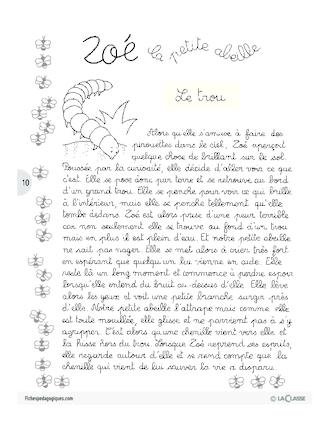 Zoé la petite abeille
Le trou
Alors qu'elle s'amuse à faire des
pirouettes dans le ciel, Zoé aperçoit
quelque chose de brillant sur le sol.
Poussée par la curiosité, elle décide d'aller voir ce que
c'est. Elle se pose donc par terre et se retrouve au bord
d'un grand trou. Elle se penche pour voir ce qui brille
à l'intérieur, mais elle se penche tellement qu'elle
tombe dedans. Zoé est alors prise d'une peur terrible
car non seulement elle se trouve au fond d'un trou
mais en plus il est plein d'eau. Et notre petite abeille
ne sait pas nager. Elle se met alors à crier très fort
en espérant que quelqu'un lui vienne en aide. Elle
reste là un long moment et commence à perdre espoir
lorsqu'elle entend du bruit au-dessus d'elle. Elle lève
alors les yeux et voit une petite branche surgir près
d'elle. Notre petite abeille l'attrape mais comme elle
est toute mouillée, elle glisse et ne parvient pas à s'y
agripper. C'est alors qu'une chenille vient vers elle et
la hisse hors du trou. Lorsque Zoé reprend ses esprits,
elle regarde autour d'elle et se rend compte que la
chenille qui vient de lui sauver la vie a disparu.
10
Fichespedagogiques.com
© LACLASSE